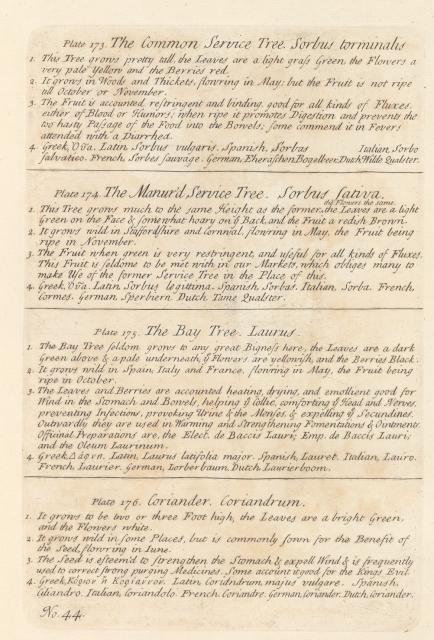 Plate 173. The Common Service Tree. Sorbus torminalis
1. This Tree grows pretty tall, the Leaves are a light graſs Green, the Flowers a
very pale Yellow and the Berries red.
2. It grows in Woods and Thickets, flowring in May; but the Fruit is not ripe
till October or November.
3. The Fruit is accounted restringent and binding, good for all kinds of Fluxes,
either of Blood or Humors; when ripe it promotes Digestion and prevents the
too hasty Paſsage of the Food into the Bowels; some commend it in Fevers
attended with a Diarrhea.
4. Greek, Latin, Sorbus vulgaris. Spanish, Sorbas Italian, Sorbo
salvatico. French, Sorbes sauvage. German, Dutch, Wilde Qualster.
Plate 174. The Manur'd Service Tree. Sorbus sativa.
1. This Tree grows much to the same Height as the former, the Flowers the same, the Leaves are a light
Green on the Face & somewhat hoary on ye Back and the Fruit a redish Brown.
2. It grows wild in Staffordshire and Cornwal, flowring in May, the Fruit being
ripe in November.
3. The Fruit when green is very restringent, and useful for all kinds of Fluxes.
This Fruit is seldome to be met with in our Markets, which obliges many to
make Use of the former Service Tree in the Place of this.
4. Greek, Latin, Sorbus legittima. Spanish, Sorbas. Italian, Sorba. French,
Cormes. German, Sperbiern. Dutch, Tame Qualster.
Plate 175. The Bay Tree. Laurus.
1. The Bay Tree seldom grows to any great Bigneſs here, the Leaves are a dark
Green above & a pale underneath, ye Flowers are yellowish, and the Berries Black.
2. It grows wild in Spain, Italy and France, flowring in May, the Fruit being
ripe in October.
3. The Leaves and Berries are accounted heating, drying, and emollient good for
Wind in the Stomach and Bowels, helping ye Collic, comforting ye Head and Nerves,
preventing Infections, provoking Urine & the Menses, & expelling ye Secundines.
Outwardly they are used in Warming and Strengthening Fomentations & Ointments.
Officinal Preparations are, the Elect. de Baccis Lauri; Emp. de Baccis Lauri;
and the Oleum Laurinum.
4. Greek, Δάφνη. Latin, Laurus latifolia major. Spanish, Laurel. Italian, Lauro.
French, Laurier. German, Lorberbaum. Dutch, Laurierboom.
Plate 176. Coriander. Coriandrum.
1. It grows to be two or three Foot high, the Leaves are a bright Green,
and the Flowers white.
2. It grows wild in some Places, but is commonly sown for the Benefit of
the Seed, flowring in June.
3. The Seed is esteem'd to strengthen the Stomach & expell Wind & is frequently
used to correct strong purging Medicines. Some account it good for the Kings Evil.
4. Greek, Κόριον ἢ Κορίαννον. Latin, Coriandrum majus vulgare. Spanish,
Ciliandro. Italian, Coriandolo. French, Coriandre. German, Coriander. Dutch, Coriander.
No. 44.